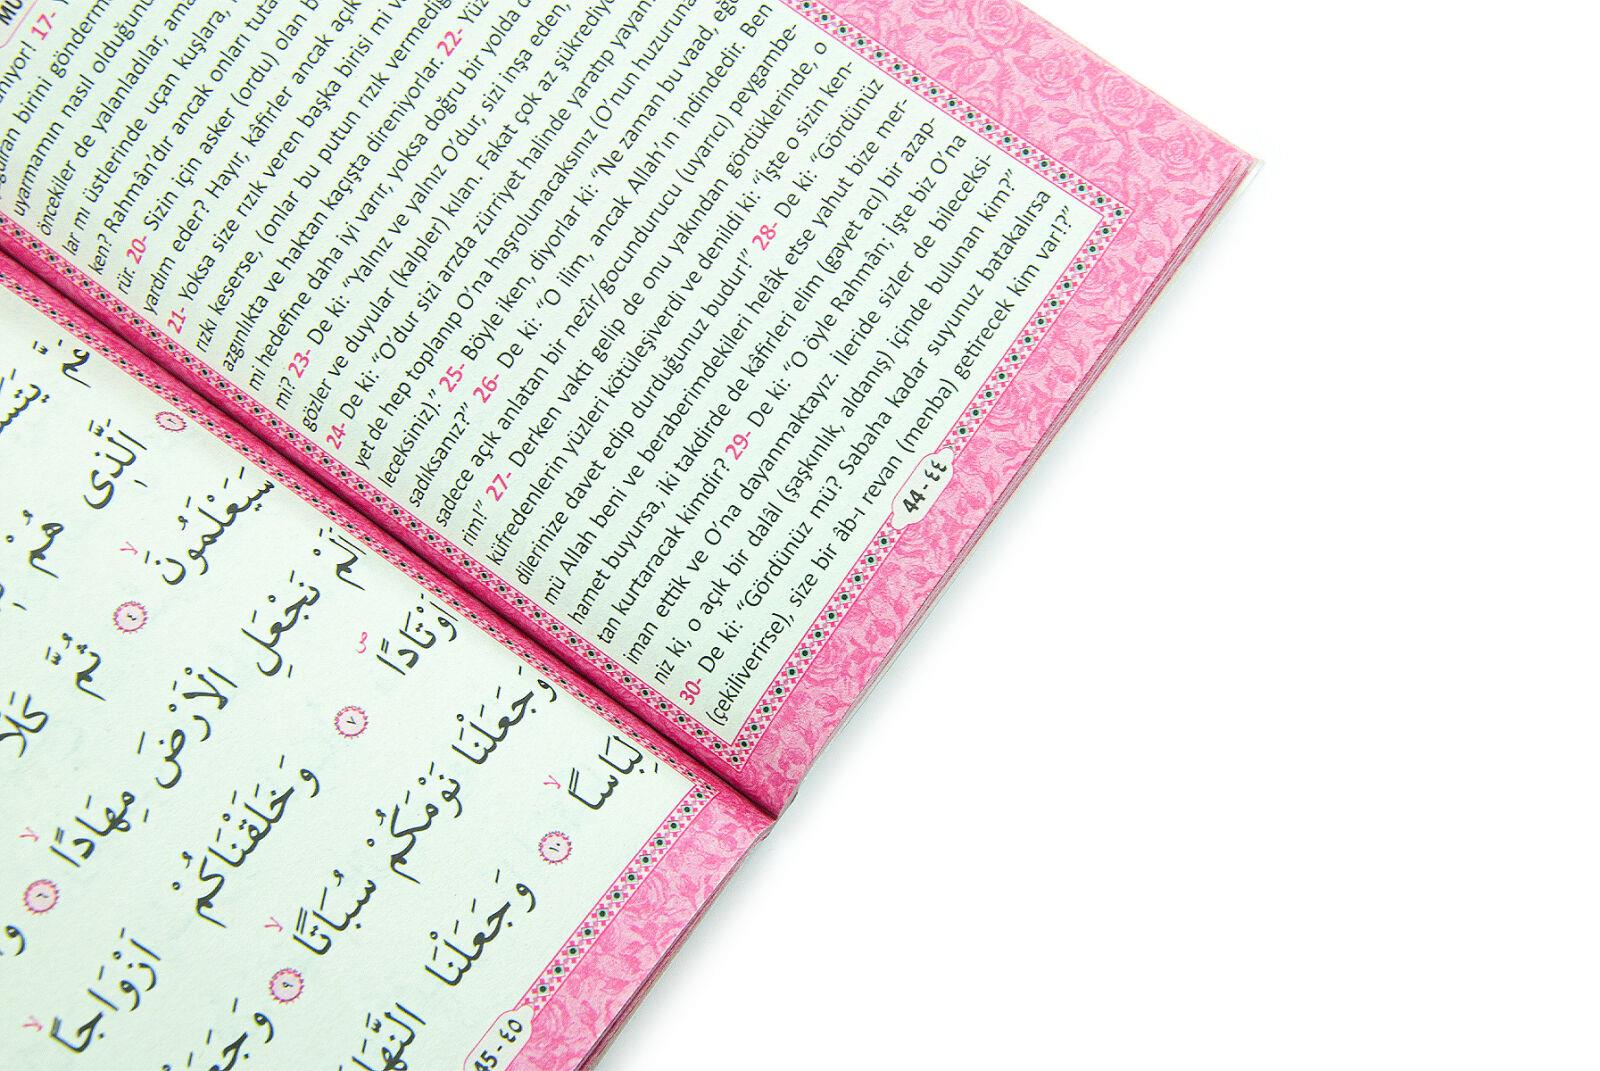 nıyor! 17-
birini gönderm
uyarmamın nasıl olduğunu
öncekiler de yalanladılar, ama
lar mı üstlerinde uçan kuşlara,
ken? Rahmân'dır ancak onları tuta
rür. 20- Sizin için asker (ordu) olan b
yardım eder? Hayır, kâfirler ancak açık
21- Yoksa size rızık veren başka birisi mi v
rızkı keserse, (onlar bu putun rızık vermediğ
azgınlıkta ve haktan kaçışta direniyorlar. 22- Yüz
mi hedefine daha iyi varır, yoksa doğru bir yolda d
mi? 23- De ki: “Yalnız ve yalnız O’dur, sizi inşa eden,
gözler ve duyular (kalpler) kılan. Fakat çok az şükrediyo
24- De ki: “O’dur sizi arzda zürriyet halinde yaratıp yayan
yet de hep toplanıp O’na haşrolunacaksınız (O’nun huzuruna
leceksiniz).” 25- Böyle iken, diyorlar ki: “Ne zaman bu vaad, eğe
sadıksanız?” 26- De ki: “O ilim, ancak Allah’ın indindedir. Ben
sadece açık anlatan bir nezîr/gocundurucu (uyarıcı) peygambe-
rim!” 27- Derken vakti gelip de onu yakından gördüklerinde, o
küfredenlerin yüzleri kötüleşiverdi ve denildi ki: “İşte o sizin ken-
dilerinize davet edip durduğunuz budur!” 28- De ki: “Gördünüz
mü Allah beni ve beraberimdekileri helâk etse yahut bize mer-
hamet buyursa, iki takdirde de kâfirleri elim (gayet acı) bir azap-
tan kurtaracak kimdir? 29- De ki: “O öyle Rahmân; İşte biz O’na
iman ettik ve O’na dayanmaktayız. İleride sizler de bileceksi-
niz ki, o açık bir dalâl (şaşkınlık, aldanış) içinde bulunan kim?”
30- De ki: “Gördünüz mü? Sabaha kadar suyunuz batakalırsa
(çekiliverirse), size bir âb-ı revan (menba) getirecek kim var!?”
44 - ٤٤
عَمَّ
اَلَّذ۪ى هُمْ
سَيَعْلَمُونَ ٤ ثُمَّ كَلَّا
اَلَمْ نَجْعَلِ الْاَرْضَ مِهَادًا ٦
اَوْتَادًا ٧ وَخَلَقْنَاكُمْ اَزْوَاجًا
وَجَعَلْنَا نَوْمَكُمْ سُبَاتًا ٩
لِبَاسًا ١٠ وَجَعَلْنَا
45 - ٤٥